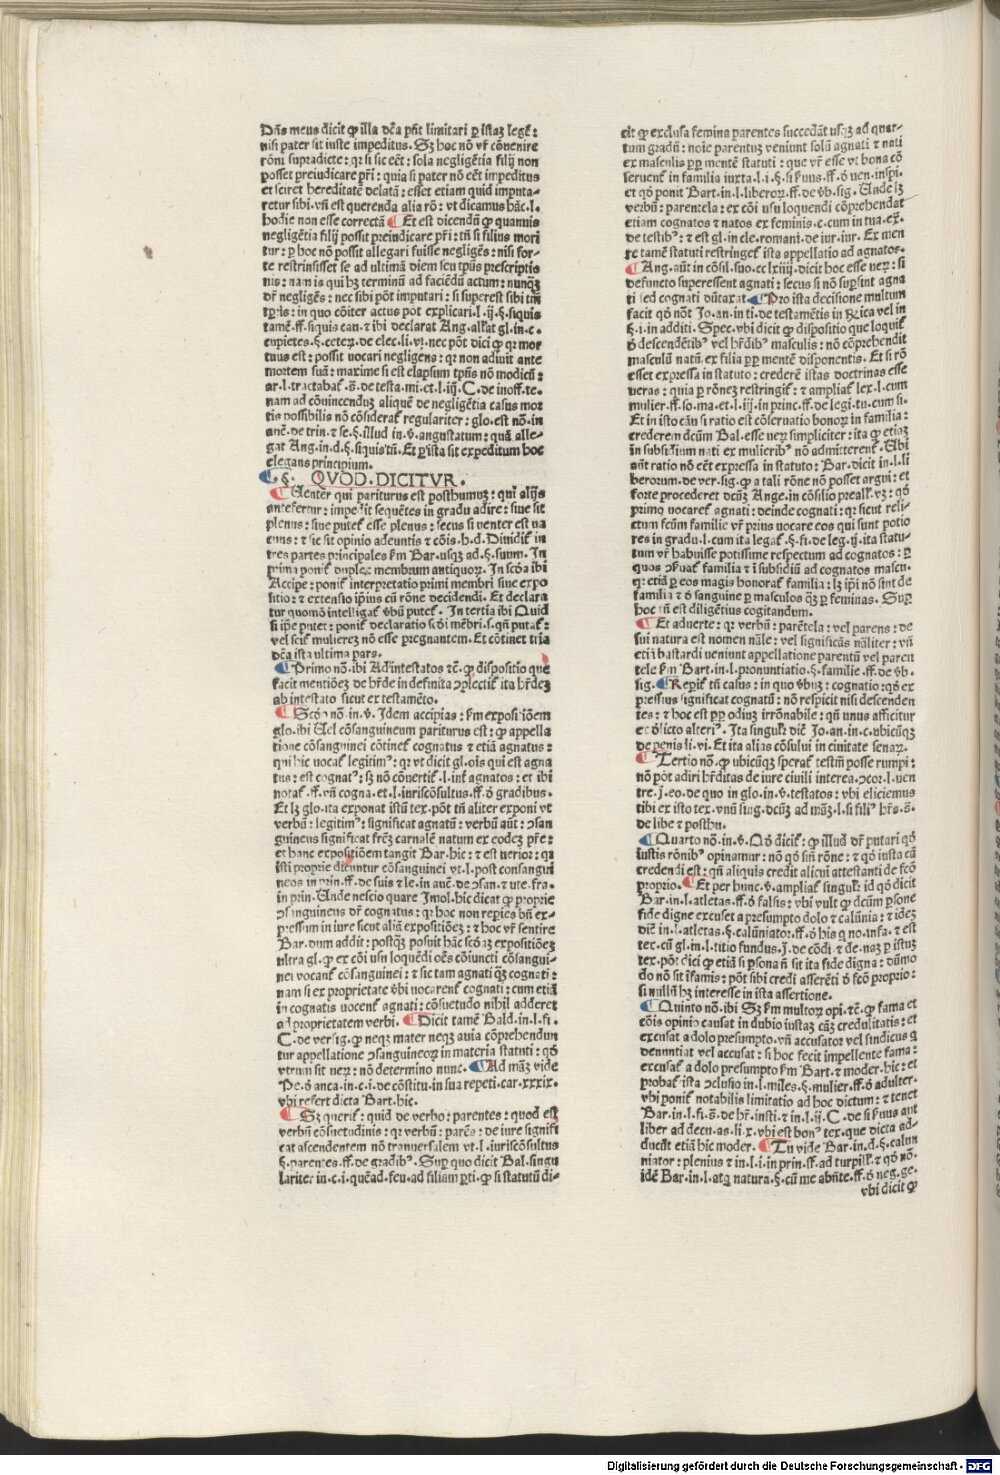 Dñs meus dicit ꝙ illa dc̃a pñt limitari ꝑ istaꝫ legẽ:
nisi pater sit iuste impeditus. Sꝫ hoc nõ vr̃ cõuenire
rõni supradicte: qꝛ si sic cẽt: sola negligẽtia filij non
posset preiudicare pr̃i: quia si pater nõ cẽt impeditus
et sciret hereditatẽ delatã: esset etiam quid imputa-
retur sibi. vñ est querenda alia rõ: vt dicamus hãc. l.
hodie non esse correctã ¶ Et est dicendũ ꝙ quamuis
negligẽtia filij possit preiudicare pr̃i: tñ si filius mori
tur: ꝑ hoc nõ possit allegari fuisse negligẽs: nisi for-
te restrinxisset se ad ultimã diem seu tp̃us prescriptio
nis: nam is qui hꝫ terminũ ad faciẽdũ actum: nunqꝫ
dr̃ negligẽs: nec sibi põt imputari: si superest sibi tm̃
tp̃ris: in quo cõiter actus pot explicari. l. ij. §. siquis
tamẽ. ff. siquis cau. ⁊ ibi declarat Ang. allat gl. in c.
cupiẽtes. §. ceteꝝ. de elec. li. vi. nec põt dici ꝙ qꝛ mor
tuus est: possit vocari negligens: qꝛ non adiuit ante
mortem suã: maxime si est elapsum tp̃us nõ modicũ:
ar. l. tractabat. §. de testa. mi. et. l. iij. C. de inoff. te.
nam ad cõuincendũ aliquẽ de negligẽtia casus mor
tis possibilis nõ cõsiderat regulariter: glo. est nõ. in
auẽ. de trin. ⁊ se. §. illud in. v. angustatum: quã alle-
gat Ang. in. d. §. siquis tñ. Et ꝑ ista sit expeditum hoc
elegans principium.
¶ §. QVOD. DICITVR.
¶ Uenter qui pariturus est posthumuꝫ: qui alijs
antefertur: impedit sequẽtes in gradu adire: siue sit
plenus: siue putet esse plenus: secus si venter est va
cuus: ⁊ sic sit opinio adeuntis ⁊ cõis. h. d. Diuidit in
tres partes principales ẜm Bar. usqꝫ ad. §. suum. In
prima ponit duplex membrum antiquoꝝ. In scõa ibi
Accipe: ponit interpretatio primi membri siue expo
sitio: ⁊ extensio ip̃ius cũ rõne decidendi. Et declara
tur quomõ intelligat v̾bũ putet. In tertia ibi Quid
si ip̃e putet: ponit declaratio scd̃i mẽbri. s. qñ putat:
vel scit mulierez nõ esse pregnantem. Et cõtinet tria
dc̃a ista ultima pars.
¶ Primo nõ. ibi Ad intestatos ⁊c̃. ꝙ dispositio que
facit mentiõeꝫ de hr̃de in definita cõplectit ita hr̃deꝫ
ab intestato sicut ex testamẽto.
¶ Scõ nõ. in. v. Idem accipias: ẜm expositiõem
glo. ibi Uel cõsanguineum pariturus est: ꝙ appella
tione cõsanguinei cõtinet cognatus ⁊ etiã agnatus:
qui hic vocat legitimꝰ: qꝛ vt dicit gl. ois qui est agna
tus: est cognatꝰ: sꝫ nõ cõuertit. l. int̃ agnatos: et ibi
notat. ff. vñ cogna. et. l. iuriscõsultus. ff. d̾ gradibus.
Et lꝫ glo. ita exponat istũ tex. põt tñ aliter exponi vt
verbũ: legitimꝰ: significat agnatũ: verbũ aũt: cõsan
guineus significat fr̃eꝫ carnalẽ natum ex eodeꝫ pr̃e:
et hanc expositiõem tangit Bar. hic: ⁊ est verior: qꝛ
isti proprie dicuntur cõsanguinei vt. l. post consangui
neos in prin. ff. de suis ⁊ le. in auẽ. de cõsan. ⁊ ute. fra.
in prin. Unde nescio quare Imol. hic dicat ꝙ proprie
cõsanguineus dr̃ cognatus: qꝛ hoc non repies bñ ex-
pressum in iure sicut aliã expositiõeꝫ: ⁊ hoc vr̃ sentire
Bar. dum addit: postqꝫ posuit hãc scõaꝫ expositiõeꝫ
ultra gl. ꝙ ex cõi usu loquẽdi oẽs cõiuncti cõsangui-
nei vocant cõsanguinei: ⁊ sic tam agnati qꝫ cognati:
nam si ex proprietate v̾bi vocarent cognati: cum etiã
in cognatis vocent agnati: cõsuetudo nihil adderet
ad proprietatem verbi. ¶ Dicit tamẽ Bald. in. l. fi.
C. de ver. sig. ꝙ neqꝫ mater neqꝫ auia cõprehendun
tur appellatione cõsanguineoꝝ in materia statuti: qd̾
vtrum sit veꝝ: nõ determino nunc. ¶ Ad mãꝫ vide
Pe. d̾ anca. in. c. i. de cõstitu. in sua repeti. car. xxxix.
vbi refert dicta Bart. hic.
¶ Sꝫ querit: quid de verbo: parentes: quod est
verbũ cõsuetudinis: qꝛ verbũ: parẽs: de iure signifi
cat ascendentem nõ tranuersalem vt. l. iuriscõsultus
§. parentes. ff. de gradibꝰ. Suꝑ quo dicit Bal. singu
lariter in. c. i. quẽad. feu. ad filiam ꝑti. ꝙ si statutũ di-
cit ꝙ exclusa femina parentes succedãt usqꝫ ad quar-
tum gradũ: noie parentuꝫ veniunt solũ agnati ⁊ nati
ex masculis ꝑꝑ mentẽ statuti: que vr̃ esse vt bona cõ
seruent in familia iuxta. l. i. §. si seruus. ff. d̾ ven. inspi.
et qd̾ ponit Bart. in. l. liberoꝝ. ff. de v̾b. sig. Unde lꝫ
verbũ: parentela: ex cõi usu loquendi cõprehendat
etiam cognatos ⁊ natos ex feminis. c. cum in tua. ex̃.
de testibꝰ: ⁊ est gl. in cle. romani. de iur. iur. Ex men
te tamẽ statuti restringet ista appellatio ad agnatos.
¶ Ang. aũt in cõsil. suo. cclxiiij. dicit hoc esse veꝝ: si
defuncto superessent agnati: secus si nõ suꝑsint agna
ti sed cognati dũtaxat. ¶ Pro ista decisione multum
facit qd̾ nõt Jo. an. in ti. de testamẽtis in Rica vel in
§. i. in additi. Spec. vbi dicit ꝙ dispositio que loquit
d̾ descendẽtibꝰ vel hr̃dibꝰ masculis: nõ cõprehendit
masculũ natũ ex filia ꝑꝑ mentẽ disponentis. Et si rõ
esset expressa in statuto: crederẽ istas doctrinas esse
veras: quia ꝑ rõneꝫ restringit: ⁊ ampliat lex. l. cum
mulier. ff. so. ma. et. l. iij. in princ. ff. de legi. tu. cum si.
Et in isto cãu si ratio est cõseruatio bonoꝝ in familia:
crederem dcũm Bal. esse veꝝ simpliciter: ita ꝙ etiaꝫ
in subsidium nati ex mulieribꝰ nõ admitterent. Ubi
aũt ratio nõ cẽt expressa in statuto: Bar. dicit in. l. li
berorum. de ver. sig. ꝙ a tali rõne nõ posset argui: et
forte procederet dcũꝫ Ange. in cõsilio preall. vꝫ: qd̾
primo vocaret agnati: deinde cognati: qꝛ sicut reli-
ctum fcũm familie vr̃ prius vocare eos qui sunt potio
res in gradu. l. cum ita legat. §. fi. de leg. ij. ita statu-
tum vr̃ habuisse potissime respectum ad cognatos: ꝑ
quos cõseruat familia ⁊ ĩ subsidiũ ad cognatos mascu-
q: etiã ꝑ eos magis honorat familia: lꝫ ip̃i nõ sint de
familia ⁊ d̾ sanguine ꝑ masculos qꝫ ꝑ feminas. Suꝑ
hoc tñ est diligẽtius cogitandum.
¶ Et aduerte: qꝛ verbũ: parẽtela: vel parens: de
sui natura est nomen nãle: vel significãs nãliter: vñ
etiã bastardi veniunt appellatione parentũ vel paren
tele ẜm Bart. in. l. pronuntiatio. §. familie. ff. de v̾b.
sig. ¶ Reꝑit tñ casus: in quo v̾buꝫ: cognatio: qd̾ ex
pressius significat cognatũ: nõ respicit nisi descenden
tes: ⁊ hoc est ꝑꝑ odiuꝫ irrõnabile: qñ unus afficitur
ex d̾licto alteriꝰ. Ita singult dic̃ Jo. an. in. c. ubicũqꝫ
de penis li. vi. Et ita alias cõsului in ciuitate senaꝝ.
¶ Tertio nõ. ꝙ ubicũqꝫ sperat testm̃ posse rumpi:
nõ põt adiri hr̃ditas de iure ciuili interea. cõcor. l. uen
tre. j. eo. de quo in glo. in. v. testatos: vbi eliciemus
tibi ex isto tex. vnũ sing. dcũꝫ ad mãꝫ. l. si filiꝰ hr̃s. s̃.
de libe ⁊ posthu.
¶ Quarto nõ. in. v. Qd̾ dicit: ꝙ illud dr̃ putari qd̾
iustis rõnibꝰ opinamur: nõ qd̾ sñ rõne: ⁊ qd̾ iusta cã
credendi est: qñ aliquis credit alicui attestanti de fcõ
proprio. ¶ Et per hunc. v. ampliat singult id qd̾ dicit
Bar. in. l. atletas. ff. d̾ falsis: vbi vult ꝙ dcũm ꝑsone
fide digne excuset a presumpto dolo ⁊ calũnia: ⁊ ideꝫ
dic̃ in. l. atletas. §. calũniator. ff. d̾ his q no. infa. ⁊ est
tex. cũ gl. in. l. titio fundus. j. de cõdi. ⁊ de. naꝫ ꝑ istuꝫ
tex. põt dici ꝙ etiã si ꝑsona ñ sit ita fide digna: dũmo
do nõ sit ĩfamis: põt sibi credi asserẽti d̾ fcõ proprio:
si nullũ hꝫ interesse in ista assertione.
¶ Quinto nõ. ibi Sꝫ ẜm multoꝝ opi. ⁊c̃. ꝙ fama et
cõis opinio causat in dubio iustaꝫ cãꝫ credulitatis: et
excusat a dolo presumpto. vñ accusator vel sindicus q
denuntiat vel accusat: si hoc fecit impellente fama:
excusat a dolo presumpto ẜm Bart. ⁊ moder. hic: et
probat ista cõclusio in. l. miles. §. mulier. ff. d̾ adulter.
vbi ponit notabilis limitatio ad hoc dictum: ⁊ tenet
Bar. in. l. fi. s̃. de hr̃. insti. ⁊ in. l. ij. C. de si seruus aut
liber ad decu. as. li. x. vbi est bonꝰ tex. que dicta ad-
ducũt etiã hic moder. ¶ Tu vide Bar. in. d. §. calun
niator: plenius ⁊ in. l. i. in prin. ff. ad turpil. ⁊ qd̾ nõ.
idẽ Bar. in. l. atqꝫ natura. §. cũ me abñte. ff. d̾ neg. ge.
vbi dicit ꝙ
Digitalisierung gefördert durch die Deutsche Forschungsgemeinschaft - DFG